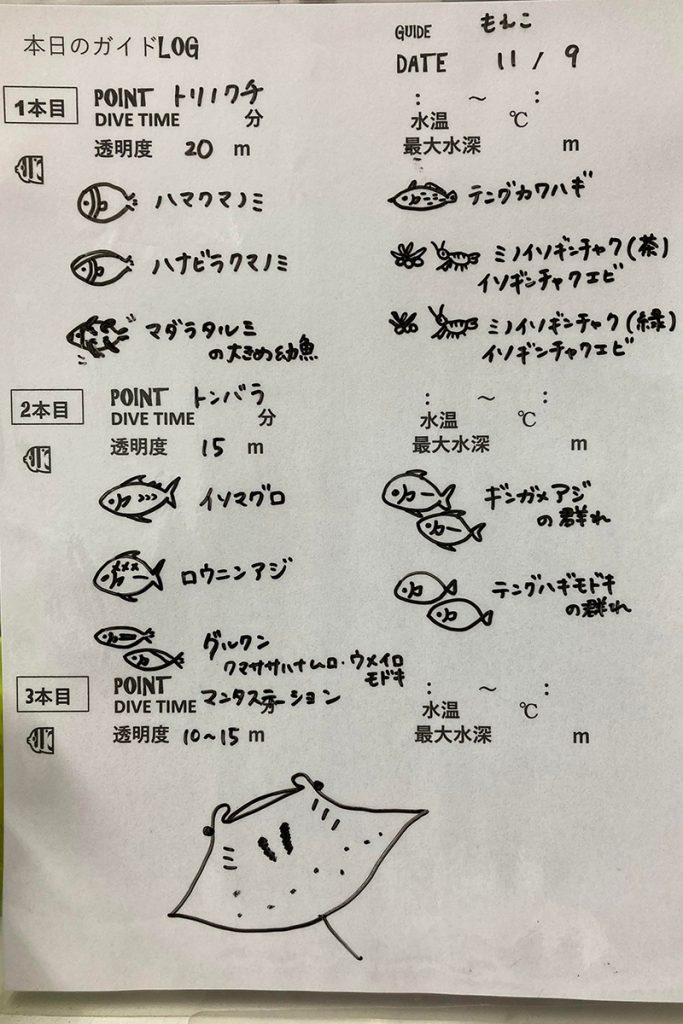 本日のガイドLOG
GUIDE もえこ
DATE 11 / 9
1本目
POINT トリノクチ
DIVE TIME 分
: ～ :
水温 ℃
透明度 20 m
最大水深 m
ハマクマノミ
テングカワハギ
ハナビラクマノミ
ミノイソギンチャク(茶)
イソギンチャクエビ
マダラタルミ
の大きめ幼魚
ミノイソギンチャク(緑)
イソギンチャクエビ
2本目
POINT トンバラ
DIVE TIME 分
: ～ :
水温 ℃
透明度 15 m
最大水深 m
イソマグロ
ギンガメアジ
の群れ
ロウニンアジ
テングハギモドキ
の群れ
グルクン
クマササハナムロ・ウメイロ
モドキ
3本目
POINT マンタステーション
DIVE TIME 分
: ～ :
水温 ℃
透明度 10～15 m
最大水深 m